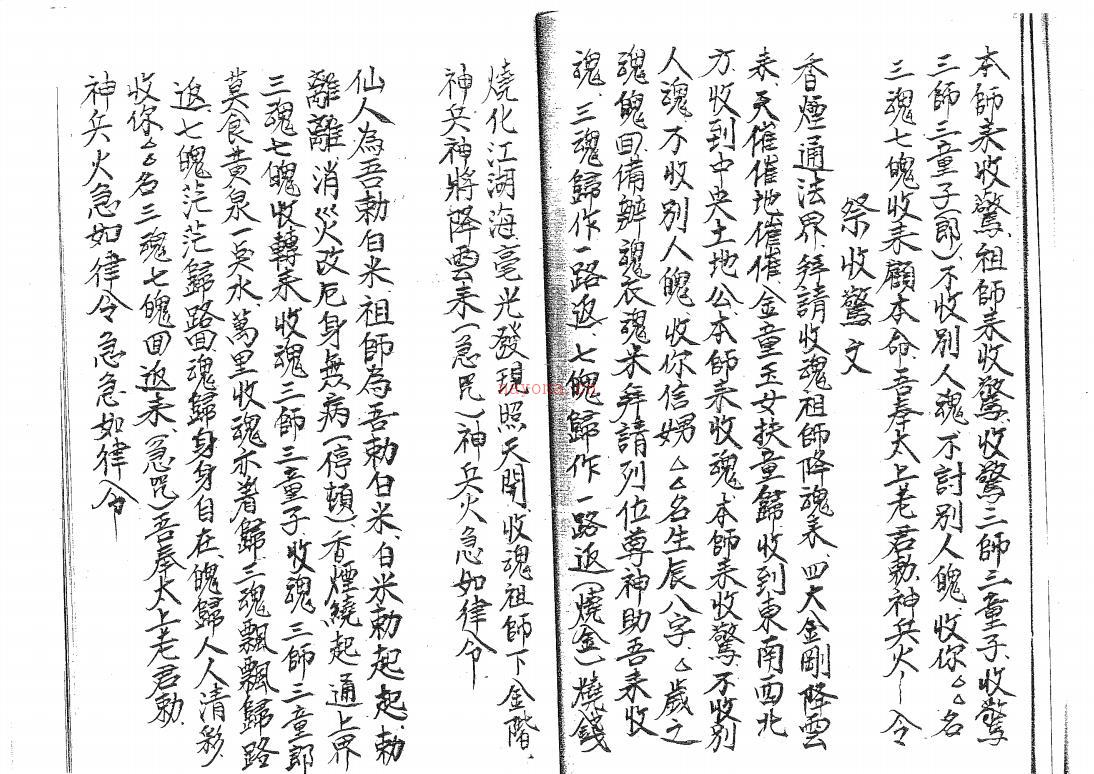 本師来收驚、祖師来收驚、收驚三師三童子、收驚
三師三童子(郎)、不收別人魂、不討別人魄、收你△△名
三魂七魄收来顧本命、吾奉太上老君勅、神兵火~令
祭收驚文
香煙通法界、拜請收魂祖師降魂来、四大金剛降雲
来、天催催地催催、金童玉女扶童歸、收到東南西北
方、收到中央土地公、本師来收魂、本師来收驚、不收別
人魂、不收別人魄、收你信娚△△名生辰八字、△歲之
魂魄回、備辦魂衣魂米、拜請列位尊神助吾来收
魂、三魂歸作一路返、七魄歸作一路返(燒金)燒錢
燒化江湖海毫光發現照天開收魂祖師下金階、
神兵神將降雲来(急咒)神兵火急如律令
仙人為吾勅白米、祖師為吾勅白米、白米勅起起勅
離離、消災改厄身無病(停頓)、香煙繞起通上界
三魂七魄收轉来、收魂三師三童子、收魂三師三童郎
莫食黄泉一点水、萬里收魂亦着歸、三魂飄飄歸路
返、七魄茫茫歸路回、魂歸身身自在、魄歸人人清彩、
收你△△名三魂七魄回返来、(急咒)吾奉太上老君勅、
神兵火急如律令急急如律令